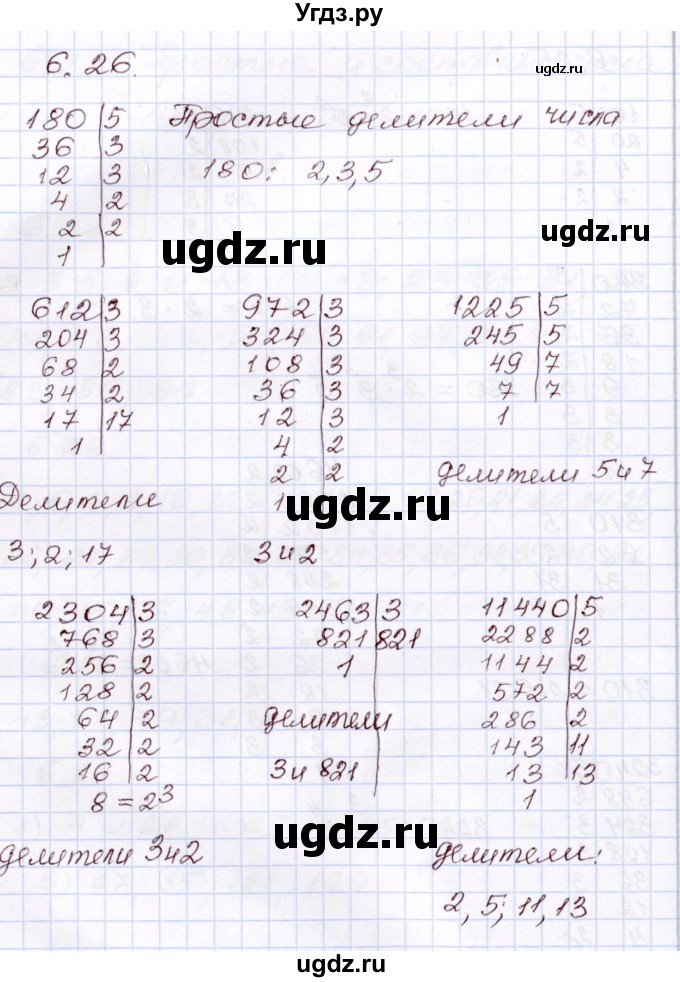 Угдз.ру
6.26.
ugdz.ru
180 | 5 Простые делители числа
36 | 3 180: 2,3,5
12 | 3
4 | 2
2 | 2
1
ugdz.ru
ugdz.ru
612 | 3
204 | 3
68 | 2
34 | 2
17 | 17
1
Делители
3; 2; 17
972 | 3
324 | 3
108 | 3
36 | 3
12 | 3
4 | 2
2 | 2
1
3 и 2
1225 | 5
245 | 5
49 | 7
7 | 7
1
делители 5 и 7
ugdz.ru
2304 | 3
768 | 3
256 | 2
128 | 2
64 | 2
32 | 2
16 | 2
8 = 2³
делители 3 и 2
2463 | 3
821 | 821
1
делители
3 и 821
11440 | 5
2288 | 2
1144 | 2
572 | 2
286 | 2
143 | 11
13 | 13
1
делители:
2, 5; 11, 13
ugdz.ru
ugdz.ru